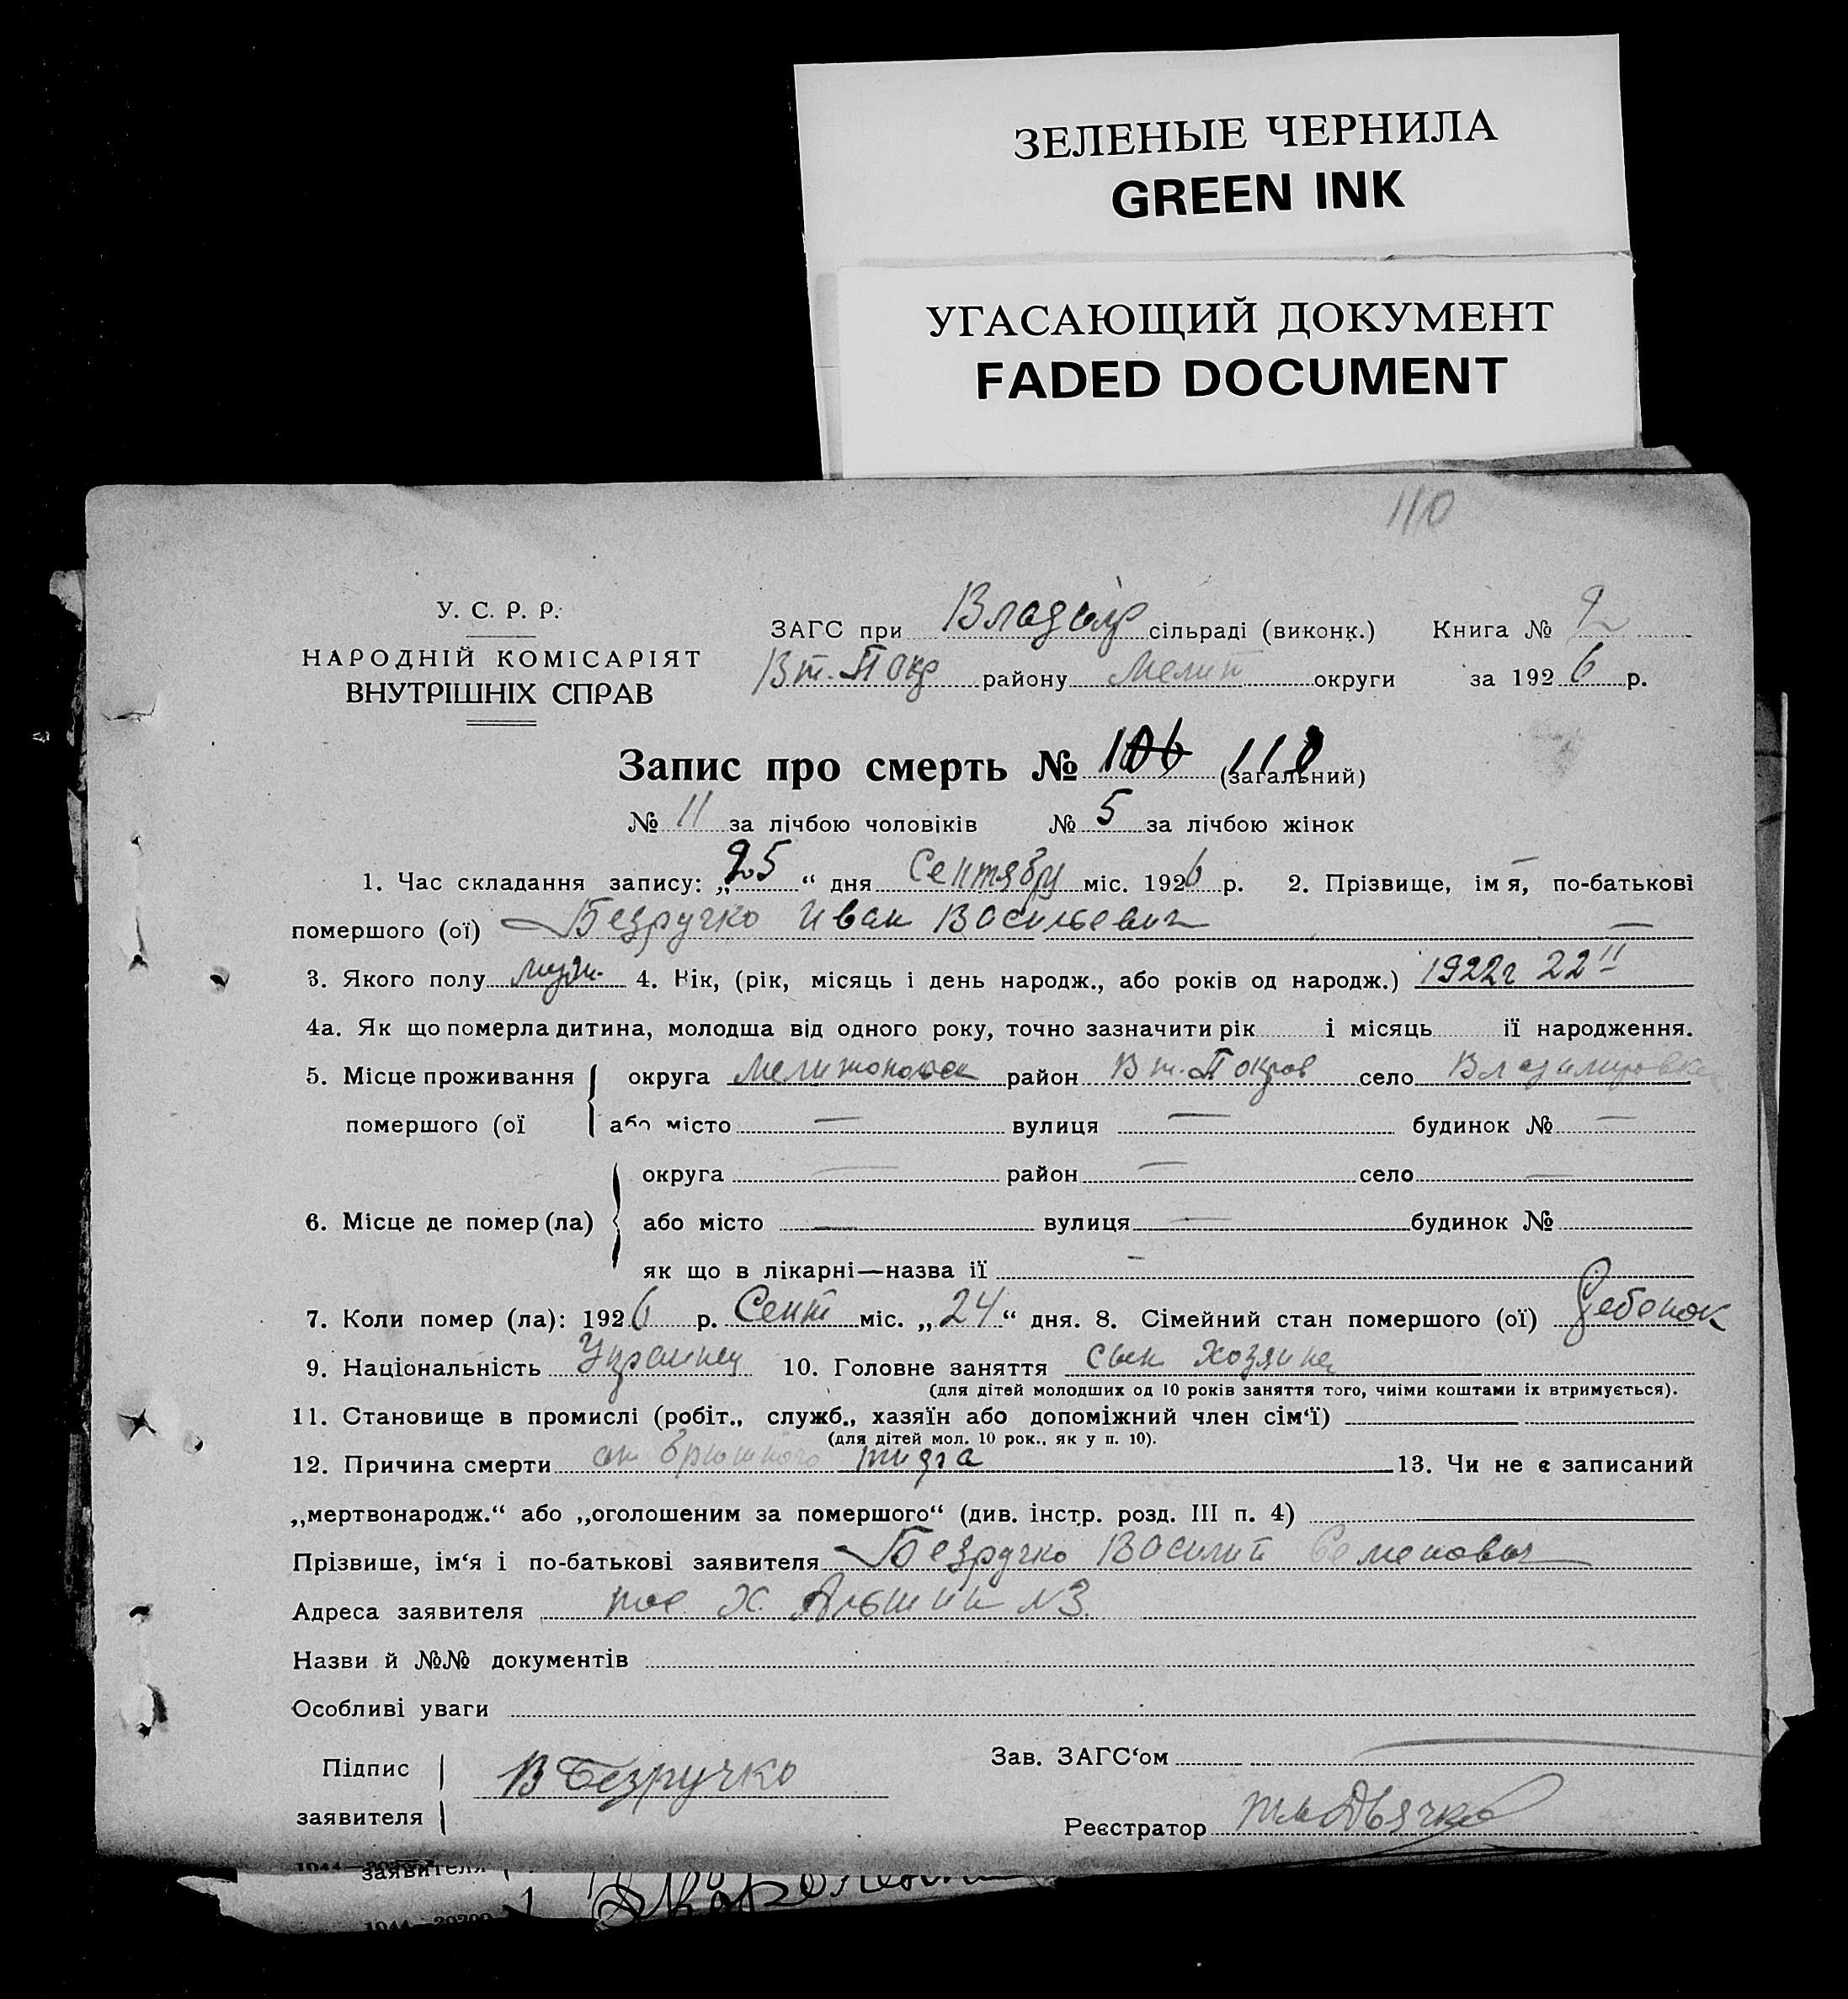 ЗЕЛЕНЫЕ ЧЕРНИЛА
GREEN INK
УГАСАЮЩИЙ ДОКУМЕНТ
FADED DOCUMENT
110
У. С. Р. Р.
НАРОДНІЙ КОМІСАРІЯТ
ВНУТРІШНІХ СПРАВ
ЗАГС при Владимир сільраді (виконк.) Книга № 2
Вт. Покр району Мелит округи за 1926 р.
Запис про смерть № 106 110 (загальний)
№ 11 за лічбою чоловіків № 5 за лічбою жінок
1. Час складання запису: „25“ дня Сентябру міс. 1926 р. 2. Прізвище, імя, по-батькові
помершого (ої) Безручко Иван Васильевич —
3. Якого полу муж. 4. Вік, (рік, місяць і день народж., або років од народж.) 1922г 22 II
4а. Як що померла дитина, молодша від одного року, точно зазначити рік і місяць її народження.
5. Місце проживання округа Мелитопольск район Вт. Покров село Владимировка
помершого (ої або місто — вулиця — будинок № —
округа — район — село —
6. Місце де помер (ла) або місто — вулиця — будинок №
як що в лікарні—назва її —
7. Коли помер (ла): 1926 р. Сент міс. „24“ дня. 8. Сімейний стан помершого (ої) Ребенок
9. Національність Украинец 10. Головне заняття сын Хозяина
(для дітей молодших од 10 років заняття того, чиїми коштами їх втримується).
11. Становище в промислі (робіт., служб., хазяїн або допоміжний член сім‘ї)
(для дітей мол. 10 рок., як у п. 10).
12. Причина смерти от брюшного тифа 13. Чи не є записаний
„мертвонародж.“ або „оголошеним за помершого“ (див. інстр. розд. III п. 4)
Прізвише, ім‘я і по-батькові заявителя Безручко Василий Семенович
Адреса заявителя пос. Х. №3.
Назви й №№ документів
Особливі уваги
Підпис заявителя В Безручко
Зав. ЗАГС‘ом
Реєстратор
заявителя
1044—20200